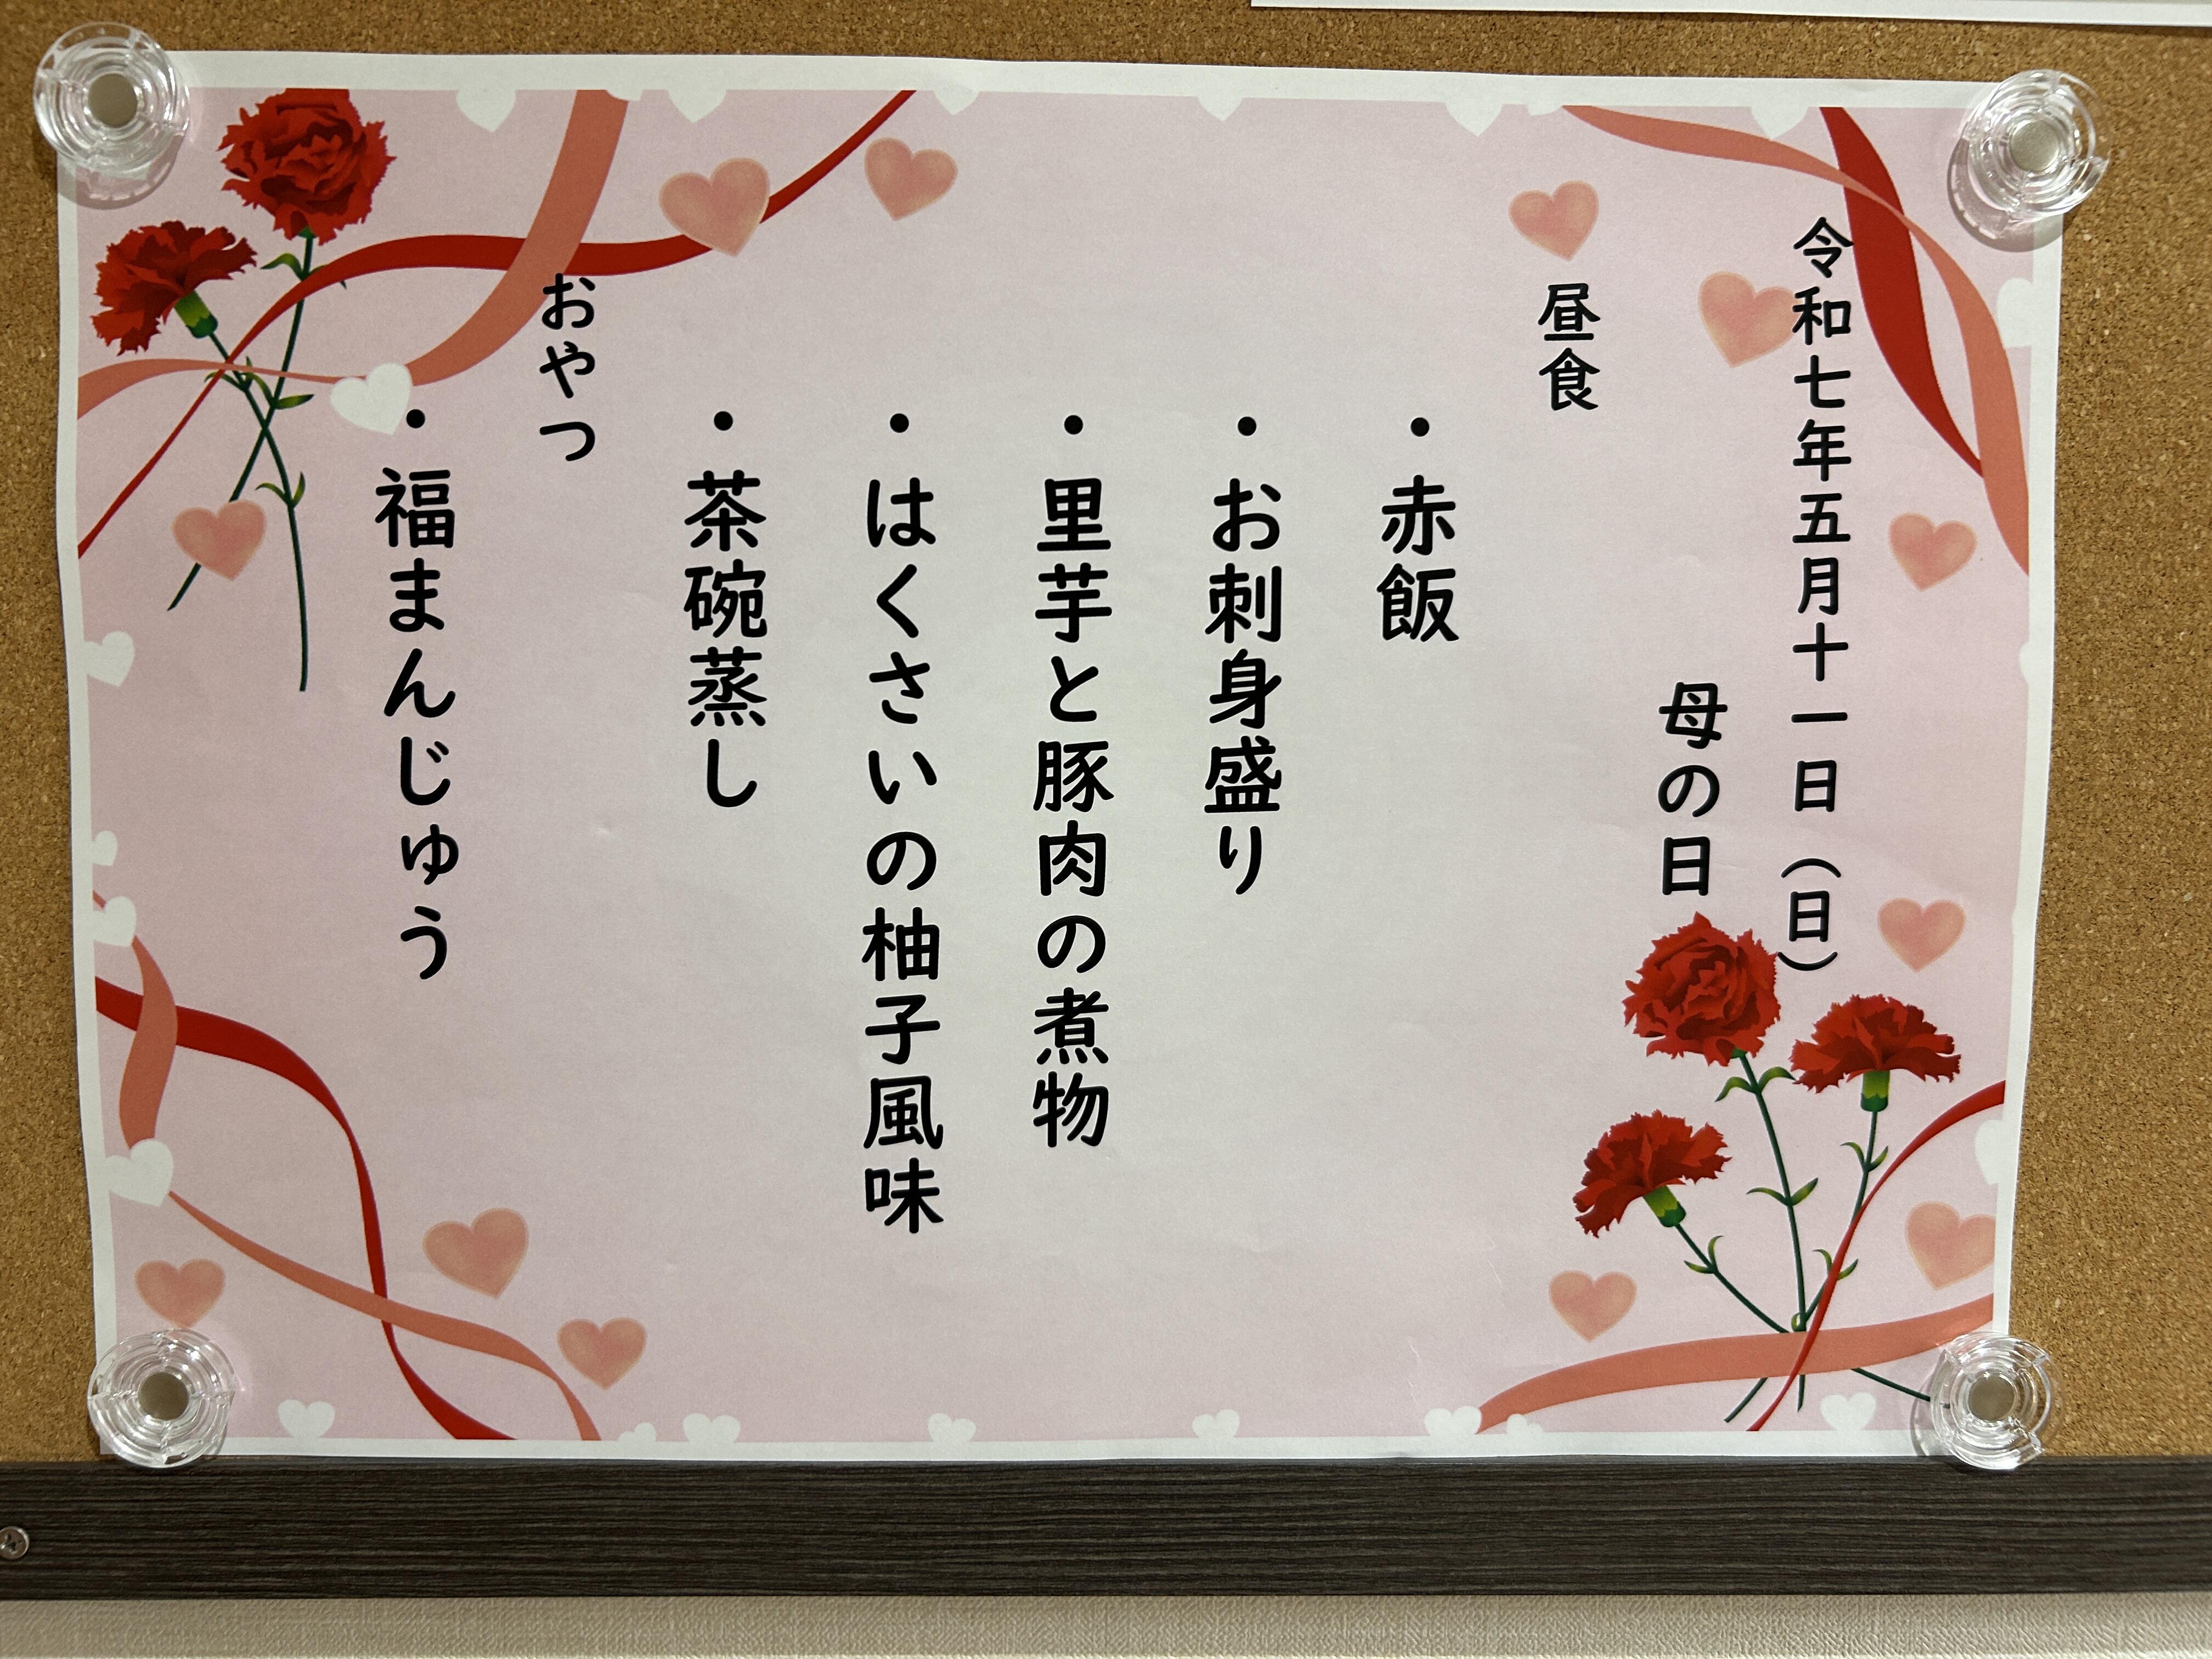 令和七年五月十一日（日）
母の日
昼食
・赤飯
・お刺身盛り
・里芋と豚肉の煮物
・はくさいの柚子風味
・茶碗蒸し
おやつ
・福まんじゅう